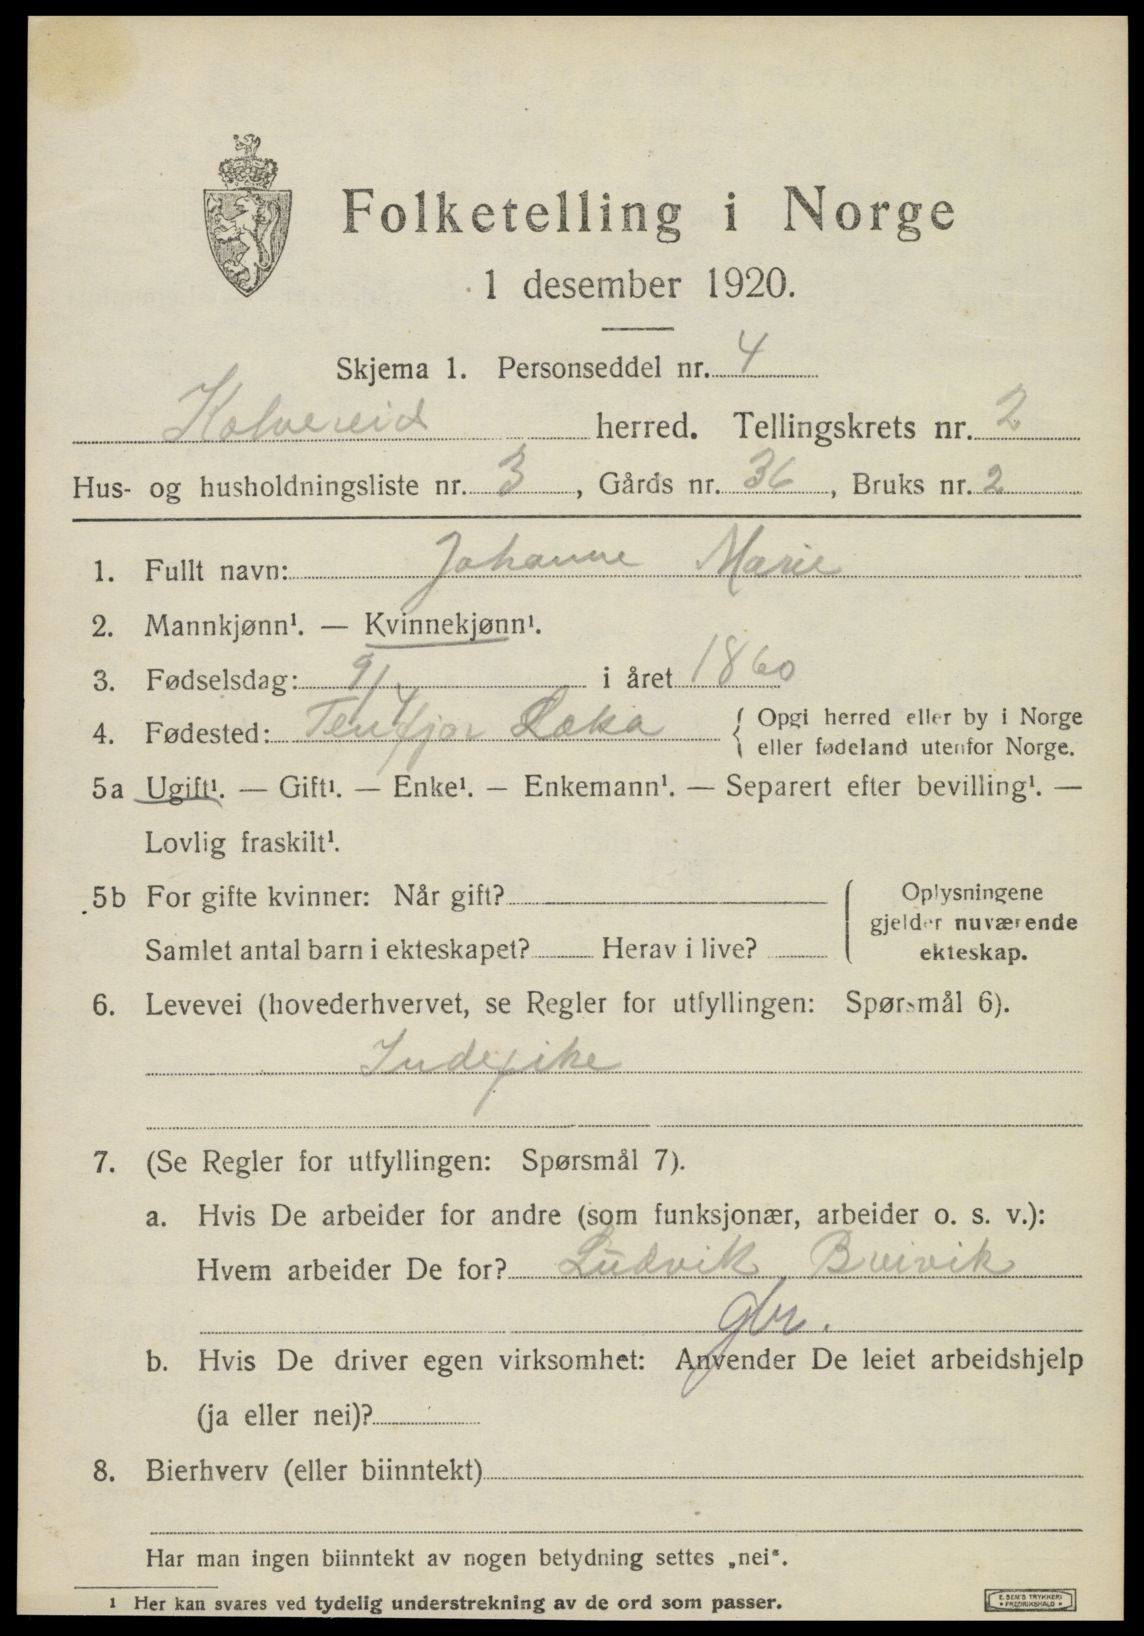 Folketelling i Norge
1 desember 1920.
Skjema 1. Personseddel nr. 4
Kolvereid herred. Tellingskrets nr. 2
Hus- og husholdningsliste nr. 3, Gårds nr. 36, Bruks nr. 2
1. Fullt navn: Johanne Marie
2. Mannkjønn¹. — Kvinnekjønn¹.
3. Fødselsdag: 9/4 i året 1860
4. Fødested: Leka { Opgi herred eller by i Norge
eller fødeland utenfor Norge.
5a Ugift¹. — Gift¹. — Enke¹. — Enkemann¹. — Separert efter bevilling¹. —
Lovlig fraskilt¹.
5b For gifte kvinner: Når gift?
Samlet antal barn i ekteskapet? Herav i live?
Oplysningene
gjelder nuværende
ekteskap.
6. Levevei (hovederhvervet, se Regler for utfyllingen: Spørsmål 6).
Indepike
7. (Se Regler for utfyllingen: Spørsmål 7).
a. Hvis De arbeider for andre (som funksjonær, arbeider o. s. v.):
Hvem arbeider De for? Ludvik Breivik
gbr.
b. Hvis De driver egen virksomhet: Anvender De leiet arbeidshjelp
(ja eller nei)?
8. Bierhverv (eller biinntekt)
Har man ingen biinntekt av nogen betydning settes „nei“.
1 Her kan svares ved tydelig understrekning av de ord som passer.
E. SEM'S TRYKKERI
FREDRIKSHALD